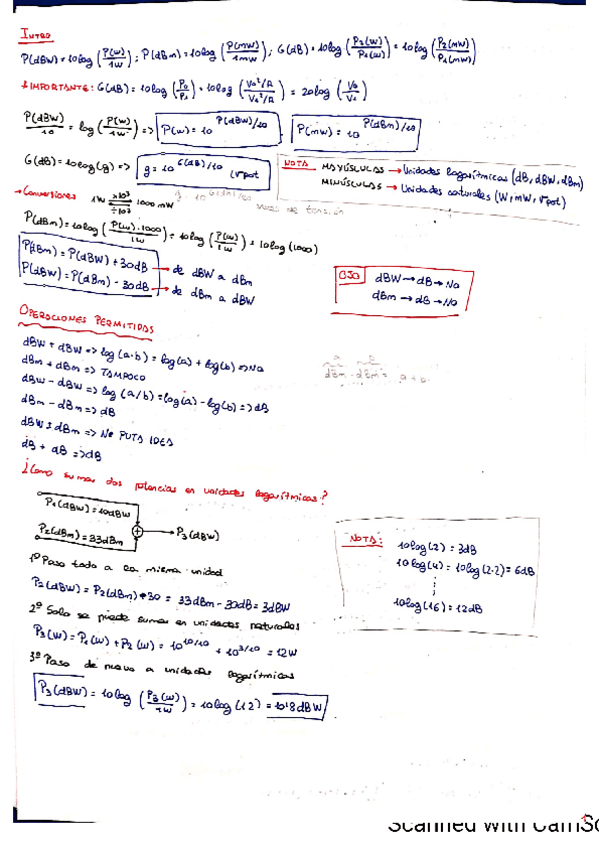 INTRO
P(dBW) = 10log (P(W)/1W) ; P(dBm) = 10log (P(mW)/1mW) ; G(dB) = 10log (P2(W)/P1(W)) = 10log (P2(mW)/P1(mW))
IMPORTANTE: G(dB) = 10log (P0/P1) = 10log (V0²/R / V1²/R) = 20log (V0/V1)
P(dBW)/10 = log (P(W)/1W) => P(W) = 10^P(dBW)/10 P(mW) = 10^P(dBm)/10
G(dB) = 10log(g) => g = 10^G(dB)/10 (Vpot)
NOTA MAYÚSCULAS → Unidades logarítmicas (dB, dBW, dBm)
MINÚSCULAS → Unidades naturales (W, mW, Vpot)
→ Conversiones 1W x10³ ÷10³ 1000 mW
P(dBm) = 10log (P(W)·1000/1W) = 10log (P(W)/1W) + 10log (1000)
P(dBm) = P(dBW) + 30dB → de dBW a dBm
P(dBW) = P(dBm) - 30dB → de dBm a dBW
OJO dBW → dB → No
dBm → dB → No
OPERACIONES PERMITIDAS
dBW + dBW => log (a·b) = log(a) + log(b) => No
dBm + dBm => TAMPOCO
dBW - dBW => log (a/b) = log(a) - log(b) => dB
dBm - dBm => dB
dBW ± dBm => Ni PUTA IDEA
dB + dB => dB
¿Como sumar dos potencias en unidades logarítmicas?
P1(dBW) = 10dBW
P2(dBm) = 33dBm + → P3(dBW)
1º Paso todo a la misma unidad
P2(dBW) = P2(dBm) + 30 = 33dBm - 30dB = 3dBW
2º Solo se puede sumar en unidades naturales
P3(W) = P1(W) + P2(W) = 10^10/10 + 10^3/10 = 12W
3º Paso de nuevo a unidades logarítmicas
P3(dBW) = 10log (P3(W)/1W) = 10log (12) = 10'8dBW
NOTA: 10log(2) = 3dB
10log(4) = 10log(2·2) = 6dB
⋮
10log(16) = 12dB
Scanned with CamSc